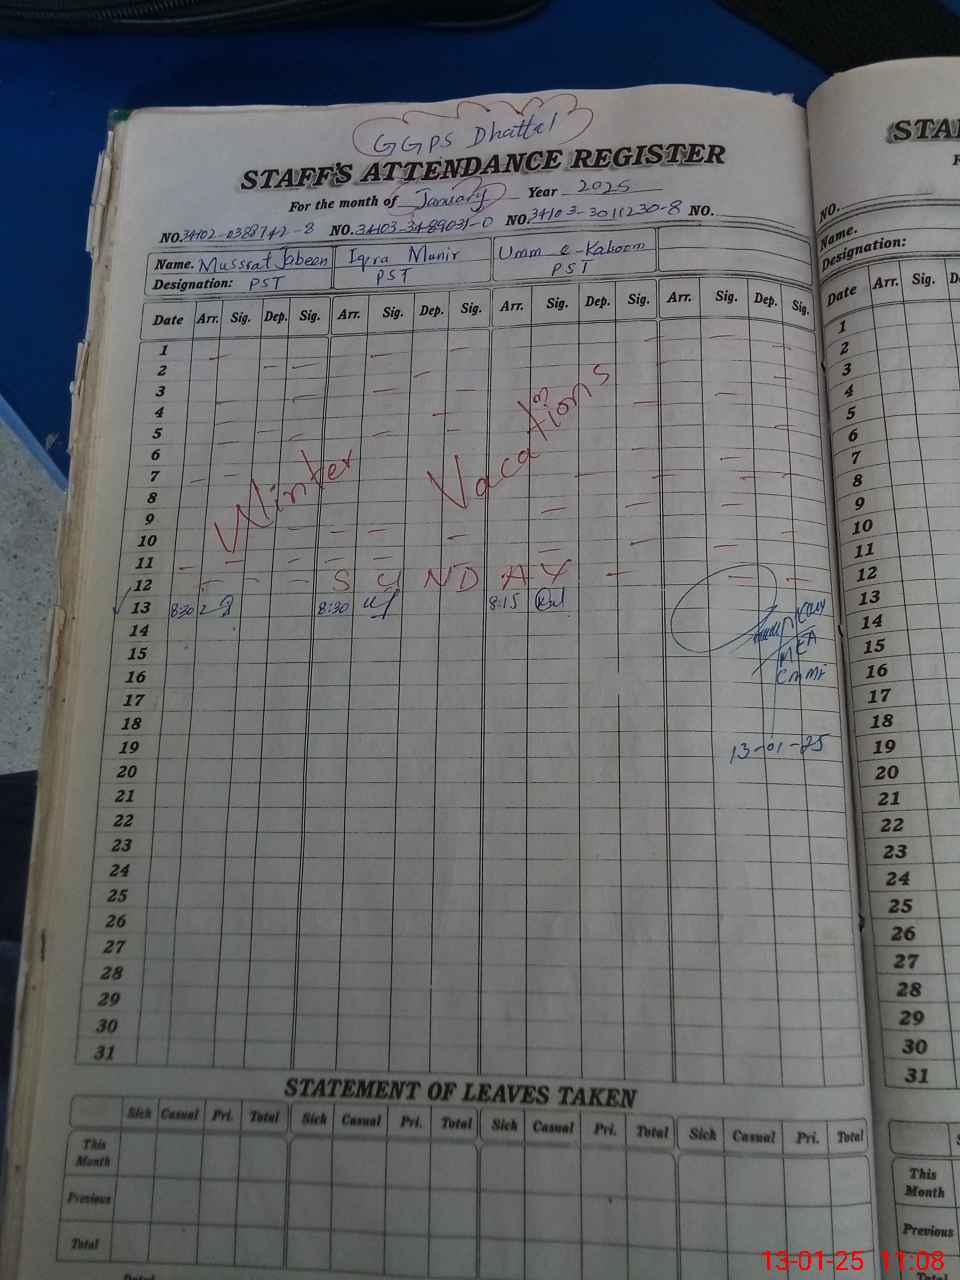 GGPS Dhattal
STAFF'S ATTENDANCE REGISTER
For the month of January Year 2025
NO. 34102-0388742-8 NO. 34103-3489031-0 NO. 34103-3011230-8 NO.
Name. Mussrat Jabeen Iqra Munir Umm e-Kalsoom
Designation: PST PST PST
Date Arr. Sig. Dep. Sig. Arr. Sig. Dep. Sig. Arr. Sig. Dep. Sig. Arr. Sig. Dep. Sig.
1
2
3
4
5
6
7
8
9
10
11
Winter Vacations
12 SUNDAY
13 8:30 8:30 8:15
14
15 MEA
16
17
18
19 13-01-25
20
21
22
23
24
25
26
27
28
29
30
31
STATEMENT OF LEAVES TAKEN
Sick Casual Pri. Total Sick Casual Pri. Total Sick Casual Pri. Total Sick Casual Pri. Total
This Month
Previous
Total
STA
NO.
Name.
Designation:
Date Arr. Sig.
1
2
3
4
5
6
7
8
9
10
11
12
13
14
15
16
17
18
19
20
21
22
23
24
25
26
27
28
29
30
31
This Month
Previous
13-01-25 11:08